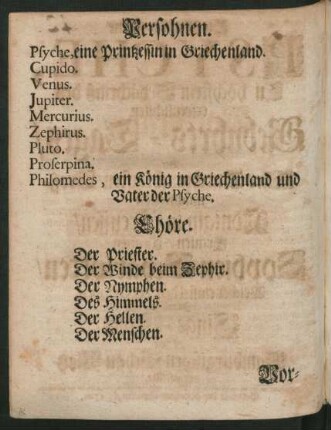 Persohnen.
Psyche, eine Printzessin in Griechenland.
Cupido.
Venus.
Jupiter.
Mercurius.
Zephirus.
Pluto.
Proserpina.
Philomedes, ein König in Griechenland und
Vater der Psyche.
Chöre.
Der Priester.
Der Winde beim Zephir.
Der Nymphen.
Des Himmels.
Der Hellen.
Der Menschen.
Vor-